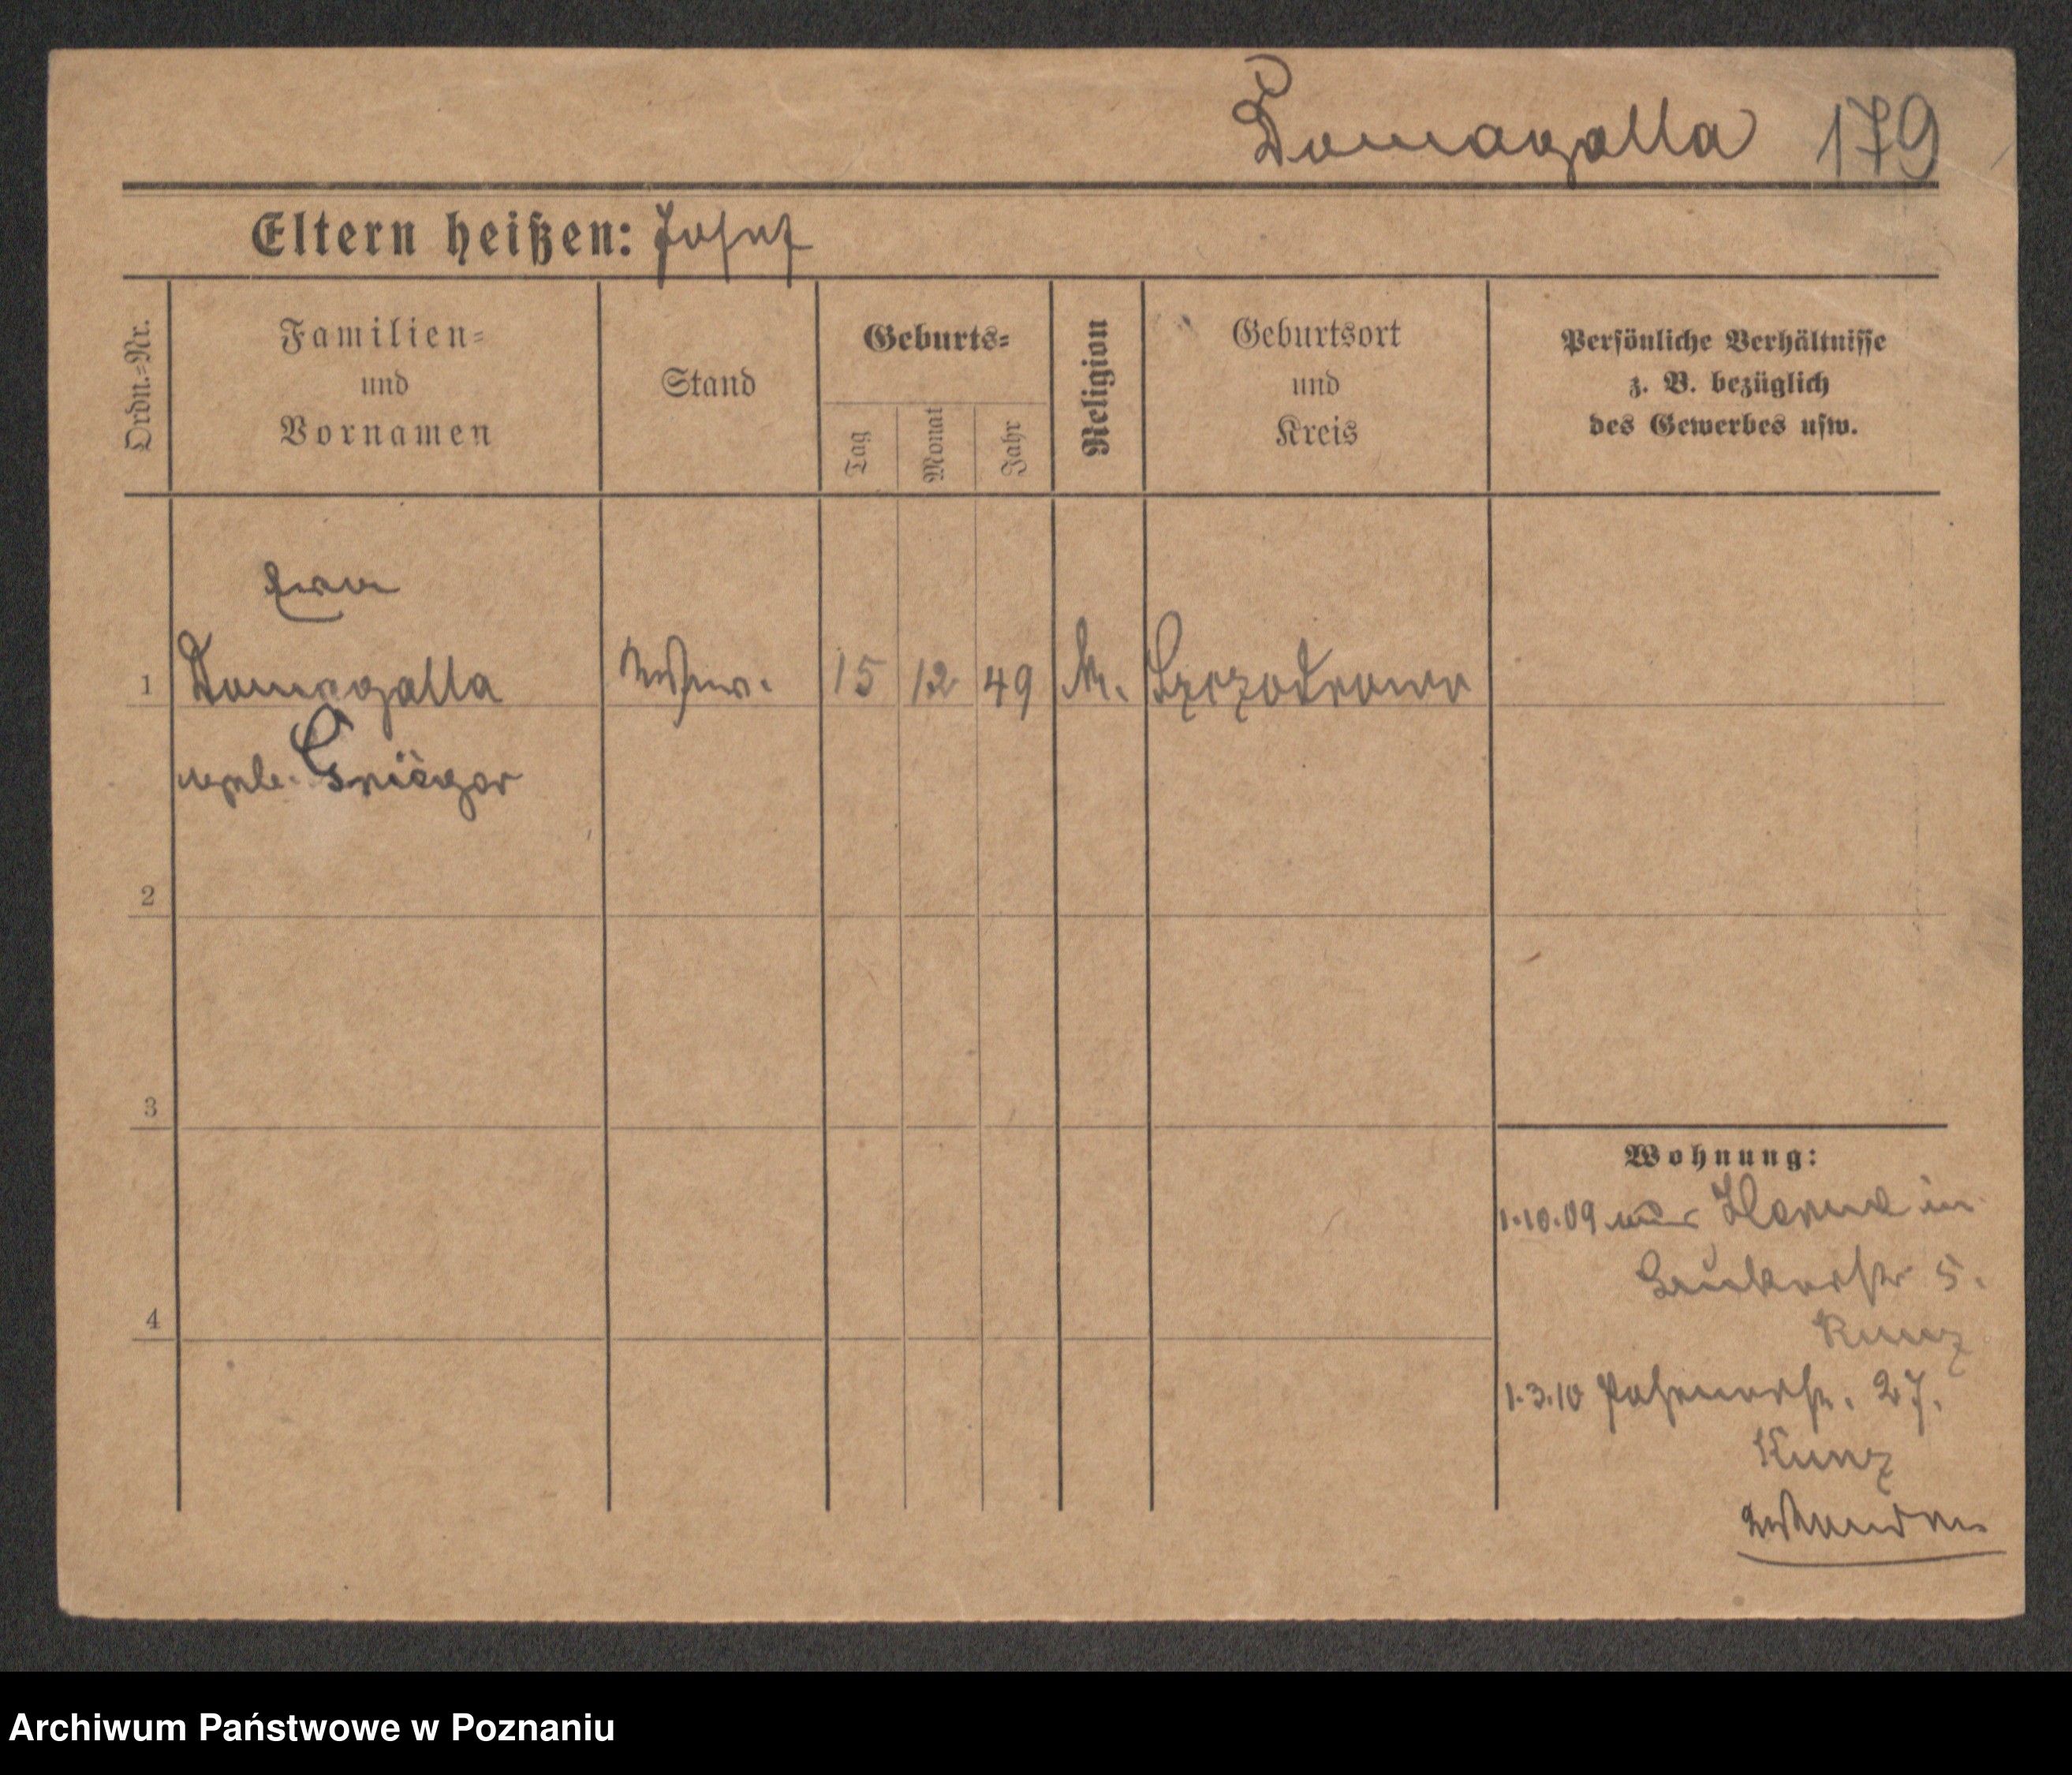 Domagalla 179
Eltern heißen: Josef
Ordn.-Nr.
Familien-
und
Vornamen
Stand
Geburts-
Tag
Monat
Jahr
Religion
Geburtsort
und
Kreis
Persönliche Verhältnisse
z. B. bezüglich
des Gewerbes usw.
Eva
1 Domagalla 15 12 49 k. Szczodrowo
geb.
2
3
4
Wohnung:
1.10.09 in
5.
Kunz
1.3.10 Posenerstr. 27.
Kunz
Archiwum Państwowe w Poznaniu